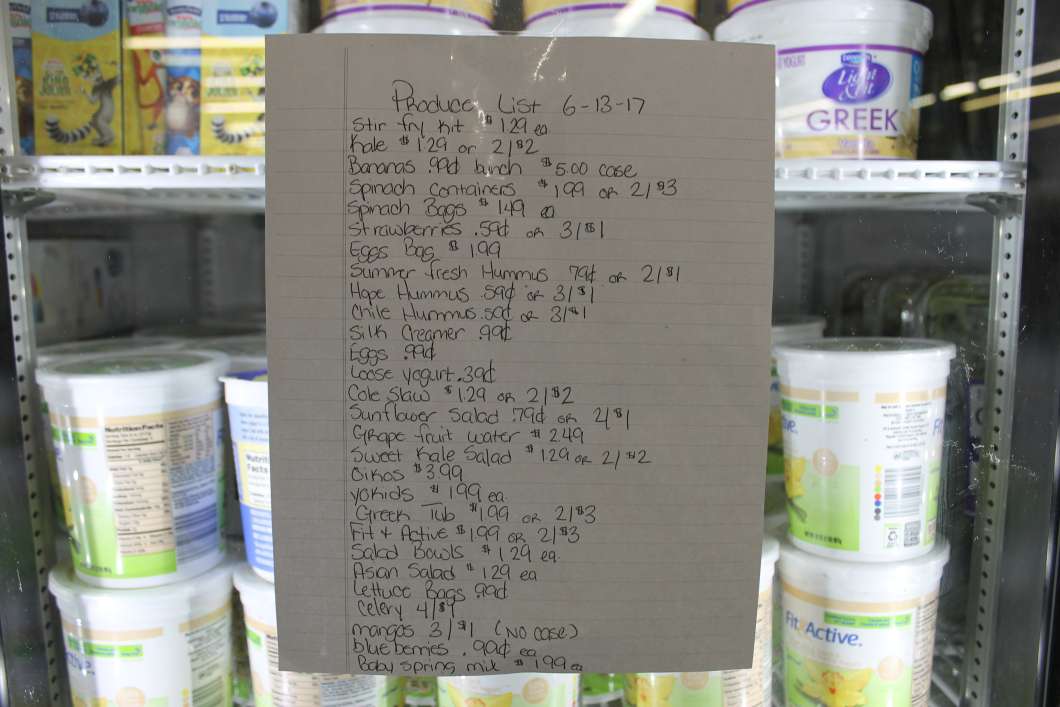 Light & Fit
GREEK
Produce List 6-13-17
Stir fry kit $1.29 ea
Kale $1.29 or 2/$2
Bananas .99¢ bunch $5.00 case
Spinach Containers $1.99 or 2/$3
Spinach Bags $1.49 ea
Strawberries .59¢ or 3/$1
Eggs Bag $1.99
Summer fresh Hummus .79¢ or 2/$1
Hope Hummus .59¢ or 3/$1
Chile Hummus .59¢ or 3/$1
Silk Creamer .99¢
Eggs .99¢
Loose yogurt .39¢
Cole Slaw $1.29 or 2/$2
Sunflower Salad .79¢ or 2/$1
Grape fruit water $2.49
Sweet Kale Salad $1.29 or 2/$2
Oikos $3.99
yokids $1.99 ea.
Greek Tub $1.99 or 2/$3
Fit & Active $1.99 or 2/$3
Salad Bowls $1.29 ea.
Asian Salad $1.29 ea
Lettuce Bags .99¢
Celery 4/$1
mangos 3/$1 (NO case)
blueberries .99¢ ea
Baby spring mix $1.99 ea
Nutrition Facts
Fit & Active.